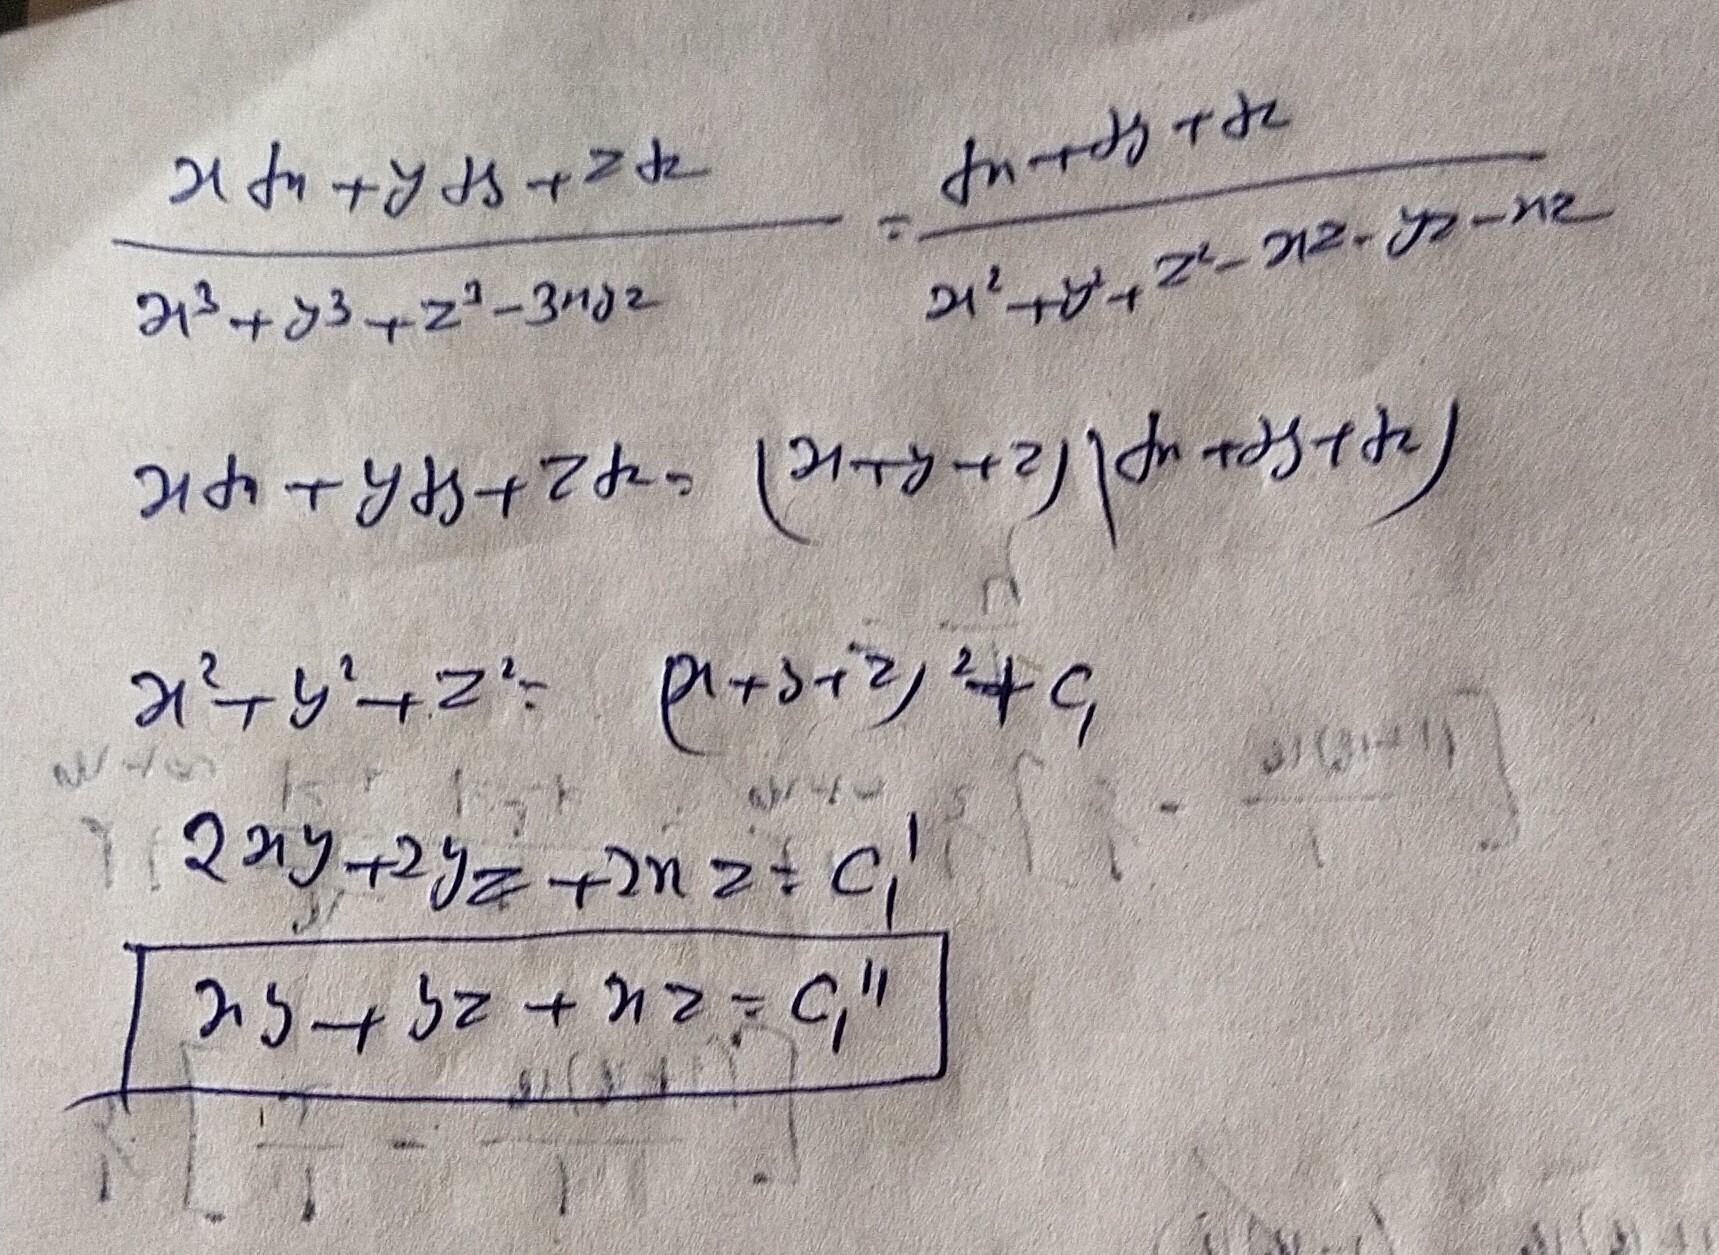 x dx + y dy + z dz / x³ + y³ + z³ - 3xyz = dx + dy + dz / x² + y² + z² - xz - yz - xz
x dx + y dy + z dz = (x + y + z) (dx + dy + dz)
x² + y² + z² = (x + y + z)² + C₁
2xy + 2yz + 2xz = C₁'
xy + yz + xz = C₁''